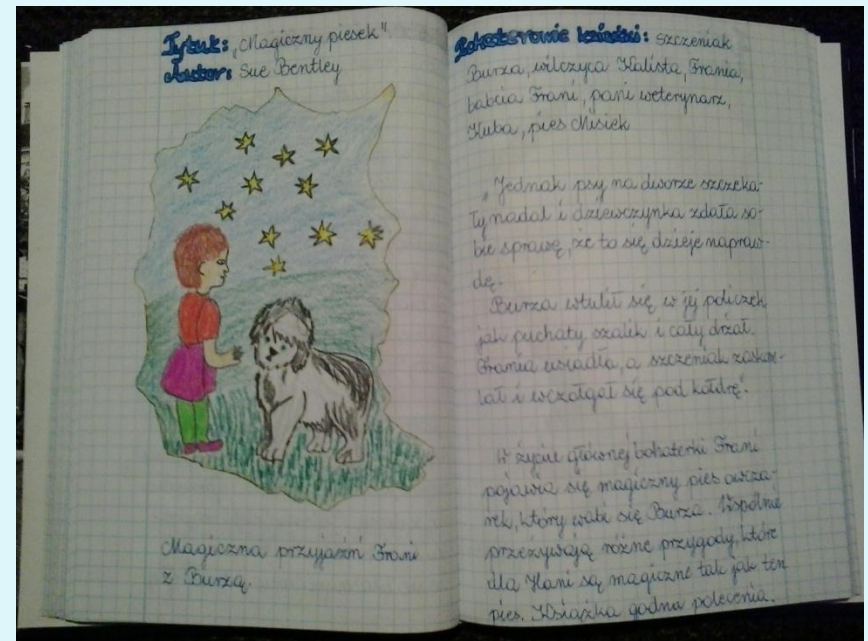 Tytuł: „Magiczny piesek”
Autor: Sue Bentley
Magiczna przyjaźń Frani
z Burzą.
Bohaterowie książki: szczeniak
Burza, wilczyca Kalista, Frania,
babcia Frani, pani weterynarz,
Kuba, pies Misiek
„Jednak psy na dworze szczeka-
ły nadal i dziewczynka zdała so-
bie sprawę, że to się dzieje napraw-
dę.
Burza wtulił się w jej policzek
jak puchaty szalik i cały drżał.
Frania usiadła, a szczeniak zasko-
lał i wczołgał się pod kołdrę”.
W życie głównej bohaterki Frani
pojawia się magiczny pies owcza-
rek, który wabi się Burza. Wspólnie
przeżywają różne przygody, które
dla Hani są magiczne tak jak ten
pies. Książka godna polecenia.